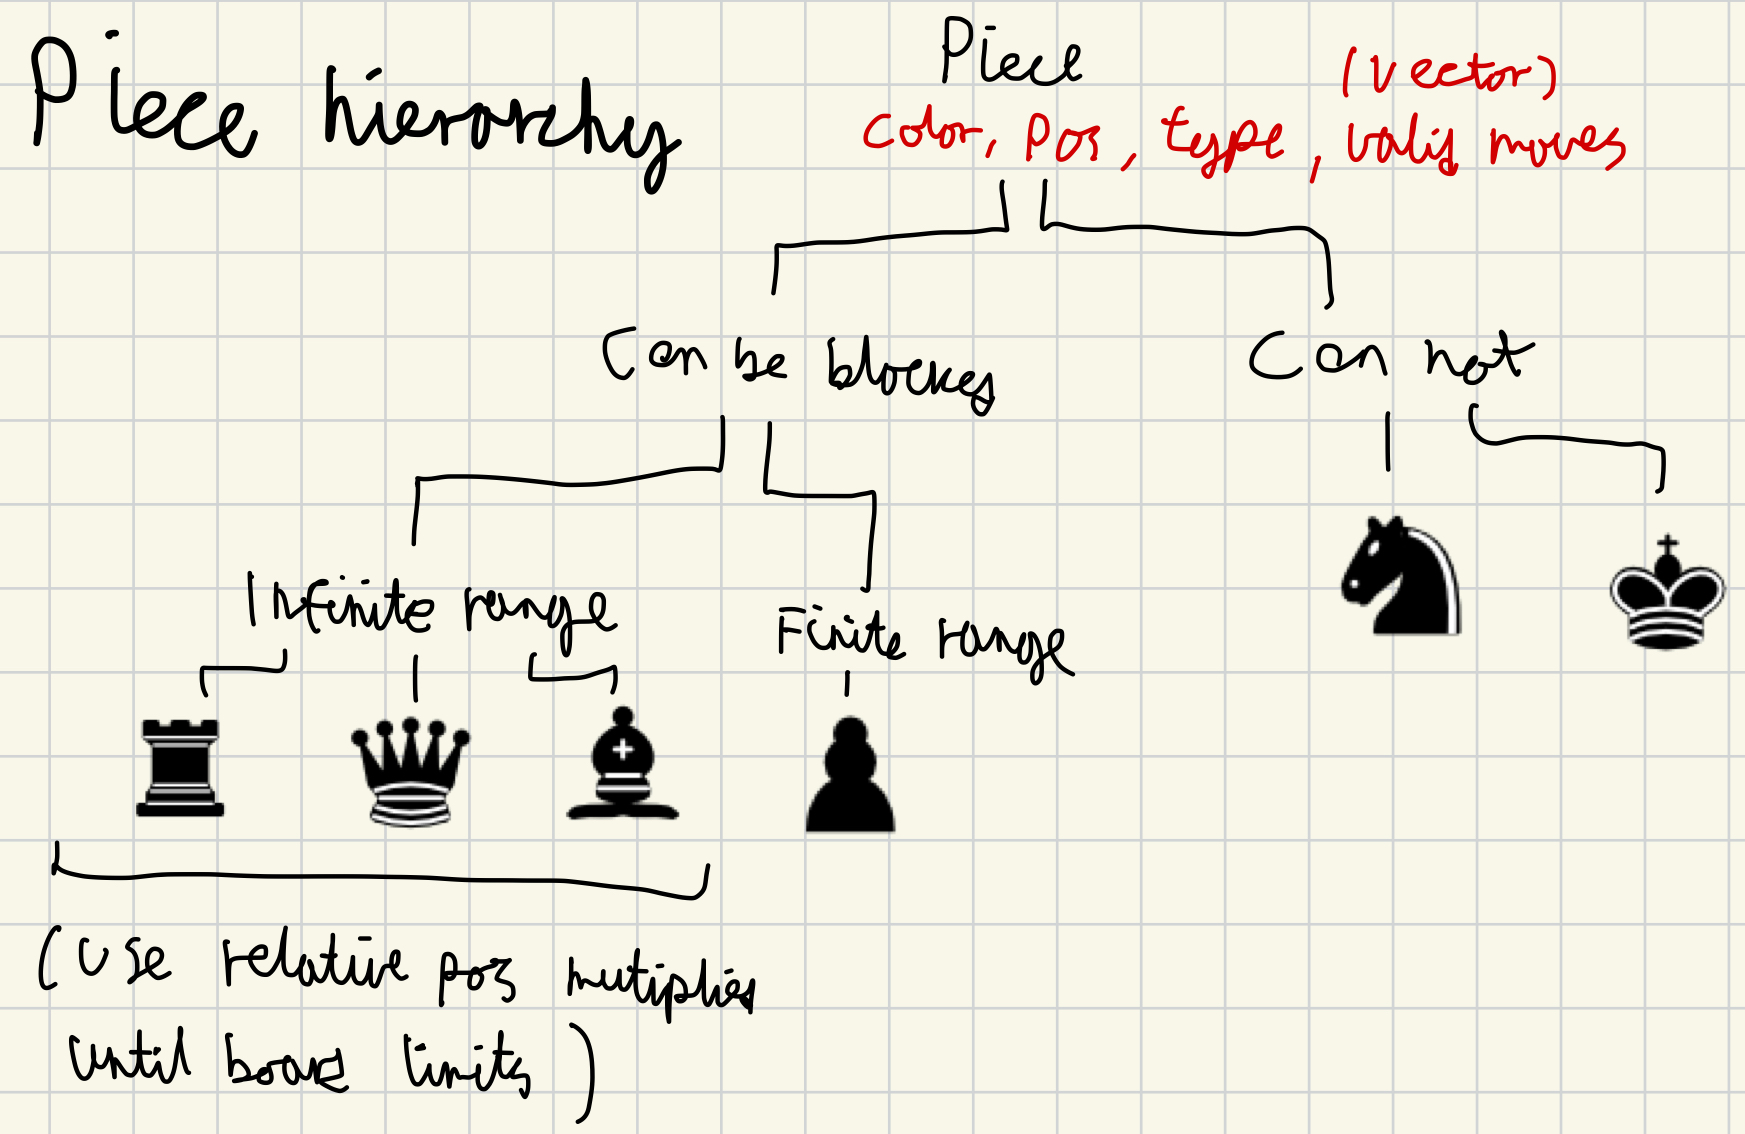 Piece hierarchy
Piece
(vector)
color, pos, type, valid moves
Can be blocked
Can not
Infinite range
Finite range
(Use relative pos mutiplied
until board limits)